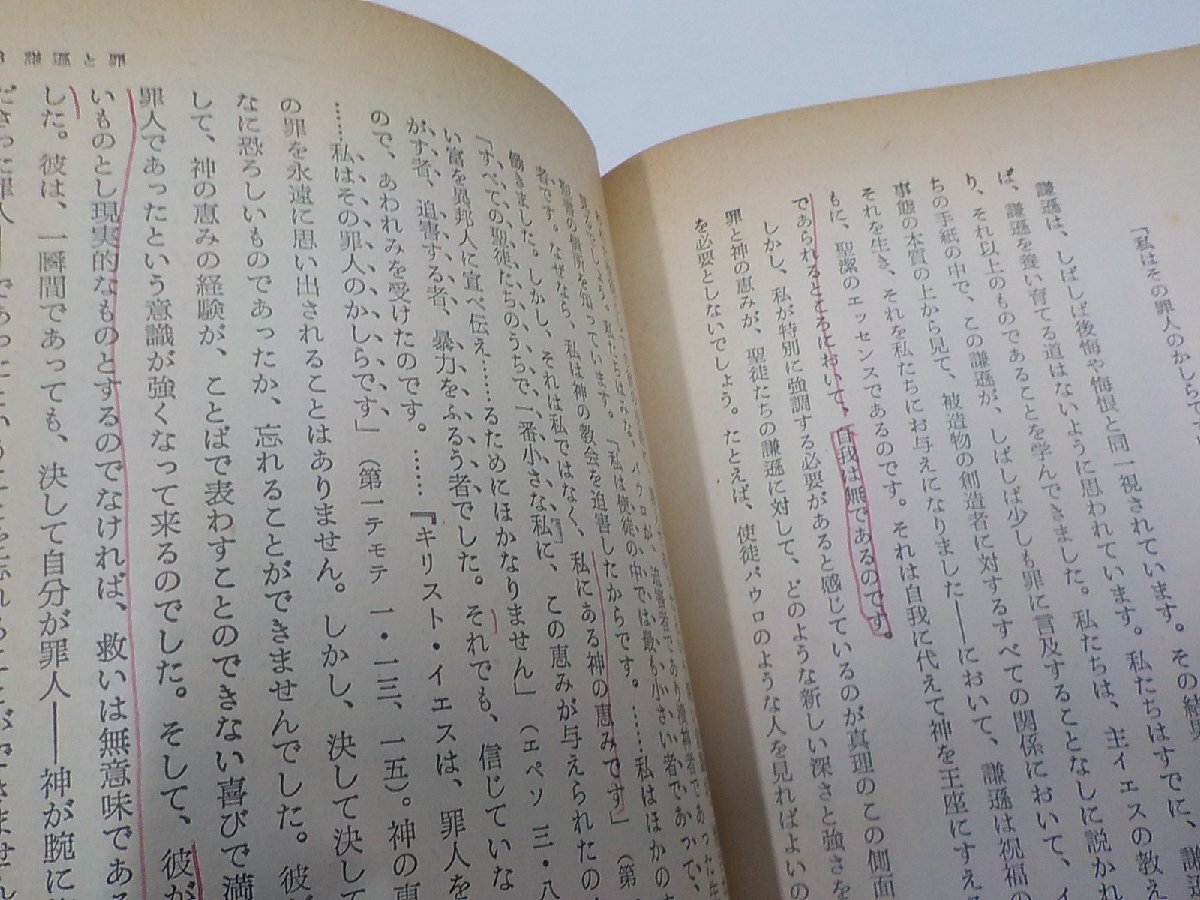 「私はその罪人のかしらで
謙遜は、しばしば後悔や悔恨と同一視されています。その結果、
ば、謙遜を養い育てる道はないように思われています。私たちはすでに、謙遜
り、それ以上のものであることを学んできました。私たちは、主イエスの教え
ちの手紙の中で、この謙遜が、しばしば少しも罪に言及することなしに説かれ
事態の本質の上から見て、被造物の創造者に対するすべての関係において、イ
それを生き、それを私たちにお与えになりました——において、謙遜は祝福の
もに、聖潔のエッセンスであるのです。それは自我に代えて神を王座にすえる
であられるところにおいて、自我は無であるのです。
しかし、私が特別に強調する必要があると感じているのが真理のこの側面
罪と神の恵みが、聖徒たちの謙遜に対して、どのような新しい深さと強さを
を必要としないでしょう。たとえば、使徒パウロのような人を見ればよいの
罪と謙遜
聖書の個所を知っています。「私は使徒の中では最も小さい者であって、
者です。なぜなら、私は神の教会を迫害したからです。……私はほかの
働きました。しかし、それは私ではなく、私にある神の恵みです」（第
「すべての聖徒たちのうちで一番小さな私に、この恵みが与えられたの
い富を異邦人に宣べ伝え……るためにほかなりません」（エペソ 三・八
がす者、迫害する者、暴力をふるう者でした。それでも、信じていな
ので、あわれみを受けたのです。……『キリスト・イエスは、罪人を
……私はその罪人のかしらです」（第一テモテ 一・一三、一五）。神の恵
の罪を永遠に思い出されることはありません。しかし、決して決して
なに恐ろしいものであったか、忘れることができませんでした。彼
して、神の恵みの経験が、ことばで表わすことのできない喜びで満
罪人であったという意識が強くなって来るのでした。そして、彼が
いものとし現実的なものとするのでなければ、救いは無意味である
した。彼は、一瞬間であっても、決して自分が罪人——神が腕に